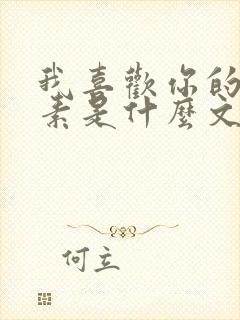 我喜歡你的
素是什麼文
何立